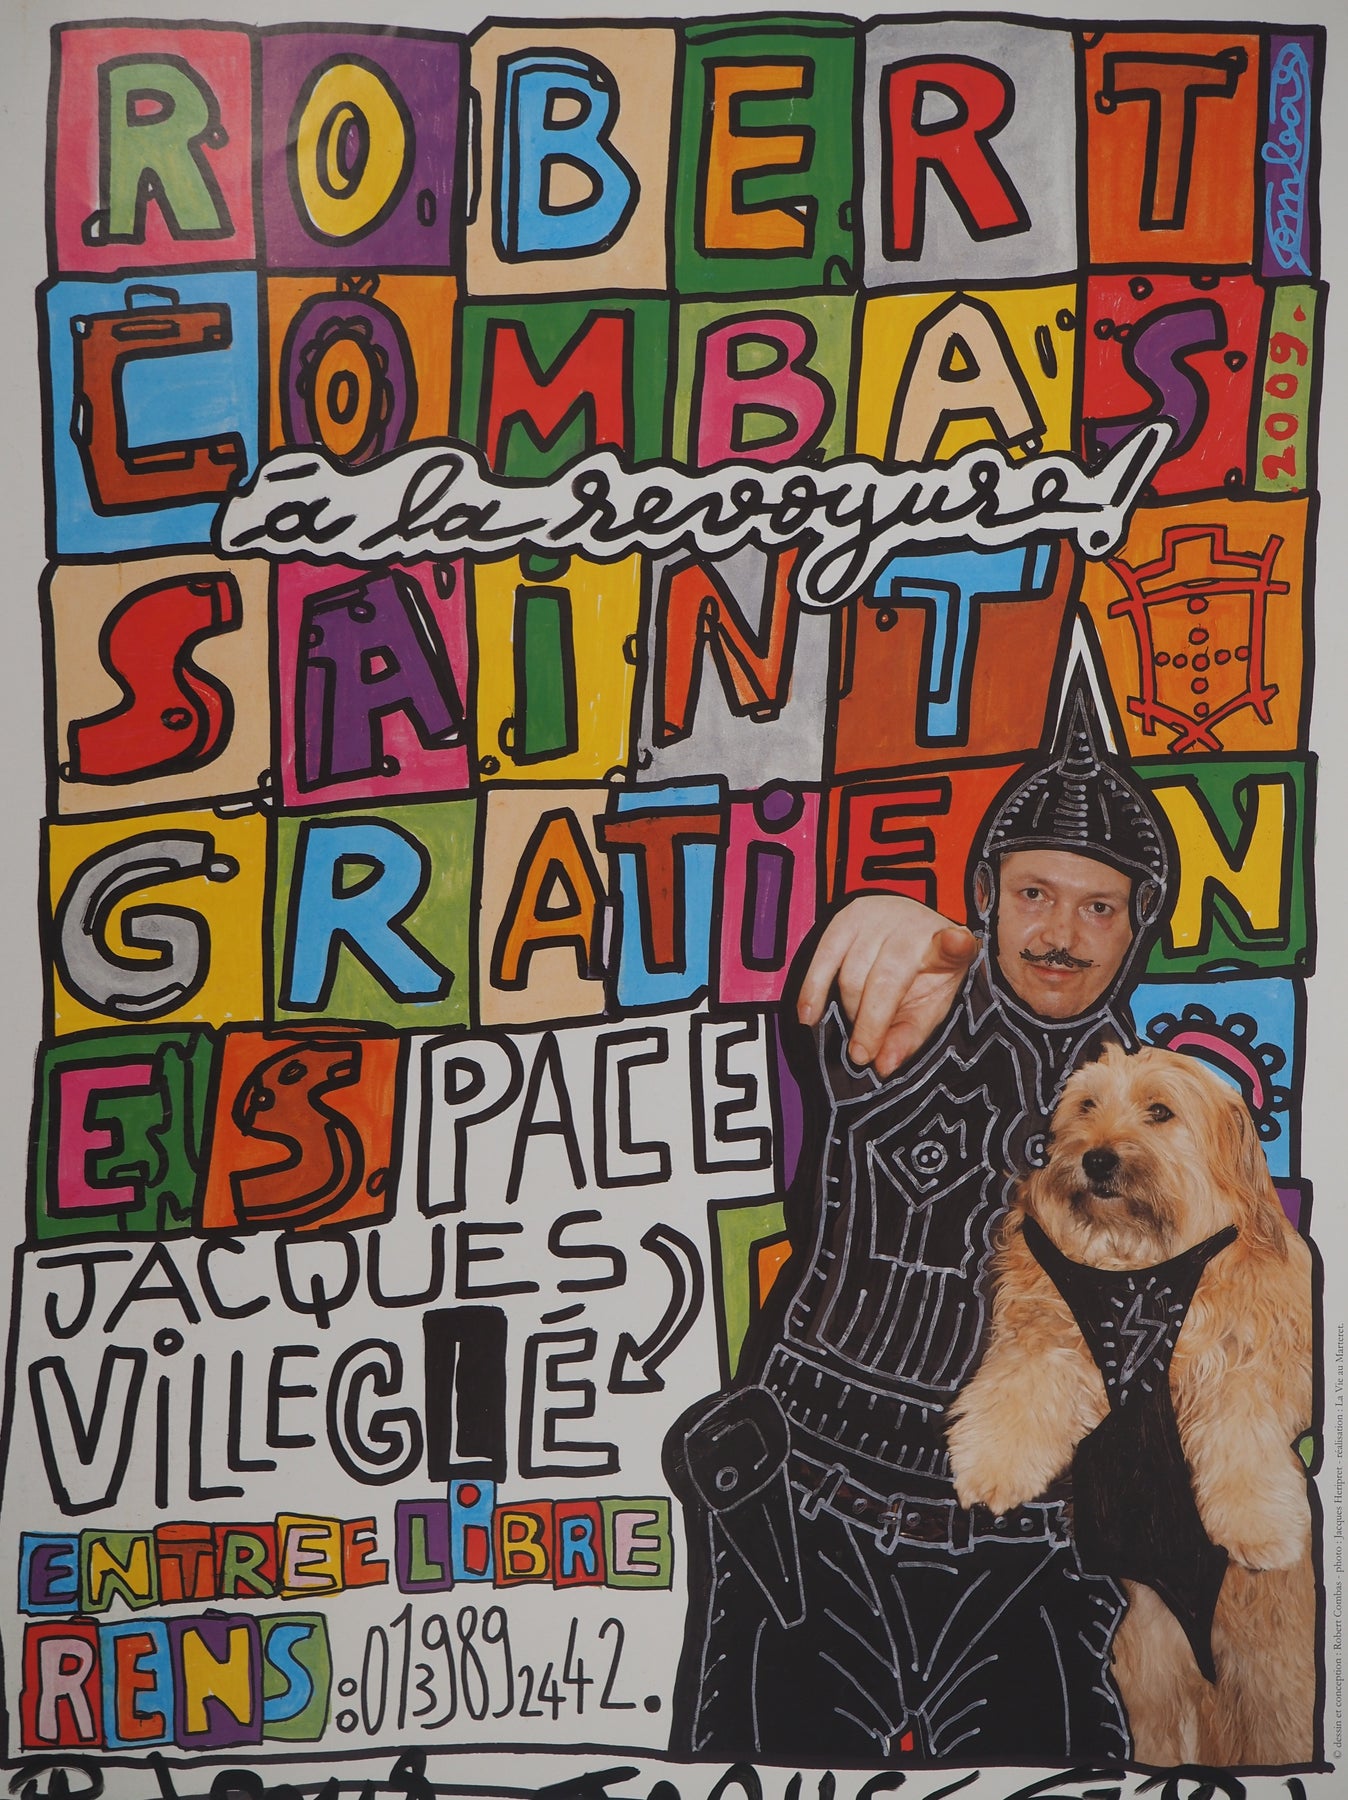 ROBERT
combas
COMBAS
2009.
à la revoyure!
SAiNT
GRATiEN
ESPACE
JACQUES
ViLLEGLÉ
ENTREE LiBRE
RENS : 0139892442.
© dessin et conception : Robert Combas - photo : Jacques Heripret - réalisation : La Vie au Marteret.